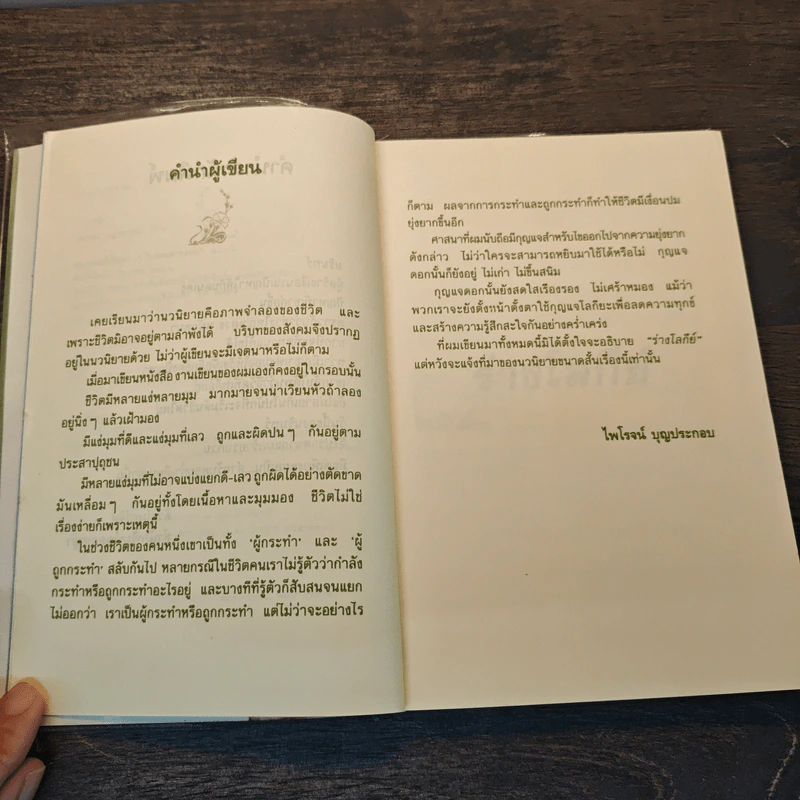 คำนำผู้เขียน
เคยเรียนมาว่านวนิยายคือภาพจำลองของชีวิต และ
เพราะชีวิตมิอาจอยู่ตามลำพังได้ บริบทของสังคมจึงปรากฏ
อยู่ในนวนิยายด้วย ไม่ว่าผู้เขียนจะมีเจตนาหรือไม่ก็ตาม
เมื่อมาเขียนหนังสือ งานเขียนของผมเองก็คงอยู่ในกรอบนั้น
ชีวิตมีหลายแง่หลายมุม มากมายจนน่าเวียนหัวถ้าลอง
อยู่นิ่งๆ แล้วเฝ้ามอง
มีแง่มุมที่ดีและแง่มุมที่เลว ถูกและผิดปนๆ กันอยู่ตาม
ประสาปุถุชน
มีหลายแง่มุมที่ไม่อาจแบ่งแยกดี-เลว ถูกผิดได้อย่างตัดขาด
มันเหลื่อมๆ กันอยู่ทั้งโดยเนื้อหาและมุมมอง ชีวิตไม่ใช่
เรื่องง่ายก็เพราะเหตุนี้
ในช่วงชีวิตของคนหนึ่งเขาเป็นทั้ง 'ผู้กระทำ' และ 'ผู้
ถูกกระทำ' สลับกันไป หลายกรณีในชีวิตคนเราไม่รู้ตัวว่ากำลัง
กระทำหรือถูกกระทำอะไรอยู่ และบางทีที่รู้ตัวก็สับสนจนแยก
ไม่ออกว่า เราเป็นผู้กระทำหรือถูกกระทำ แต่ไม่ว่าจะอย่างไร
ก็ตาม ผลจากการกระทำและถูกกระทำก็ทำให้ชีวิตมีเงื่อนปม
ยุ่งยากขึ้นอีก
ศาสนาที่ผมนับถือมีกุญแจสำหรับไขออกไปจากความยุ่งยาก
ดังกล่าว ไม่ว่าใครจะสามารถหยิบมาใช้ได้หรือไม่ กุญแจ
ดอกนั้นก็ยังอยู่ ไม่เก่า ไม่ขึ้นสนิม
กุญแจดอกนั้นยังสดใสเรืองรอง ไม่เศร้าหมอง แม้ว่า
พวกเราจะยังตั้งหน้าตั้งตาใช้กุญแจโลกิยะเพื่อลดความทุกข์
และสร้างความรู้สึกสะใจกันอย่างคร่ำเคร่ง
ที่ผมเขียนมาทั้งหมดนี้มิได้ตั้งใจจะอธิบาย "ร่างโลกีย์"
แต่หวังจะแจ้งที่มาของนวนิยายขนาดสั้นเรื่องนี้เท่านั้น
ไพโรจน์ บุญประกอบ